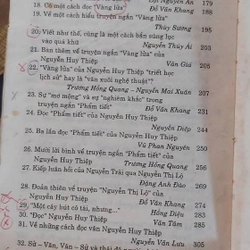 18. Có một cách đọc "Vàng lửa" 179
Đỗ Văn Khang
19. Về một cách hiểu truyện ngắn "Vàng lửa" 187
Thúy Sương
20. Viết như thế, cũng là một cách bắn súng lục
vào quá khứ 205
Nguyễn Thúy Ái
21. Bàn thêm về truyện ngắn "Vàng lửa" của
Nguyễn Huy Thiệp
Văn Giá
22. "Vàng lửa" của Nguyễn Huy Thiệp "triết học
lịch sử" hay là "văn xuôi nghệ thuật"?
Trương Hồng Quang - Nguyễn Mai Xuân
23. Sự "mơ mộng" và sự "nghiêm khắc" trong
truyện ngắn "Phẩm tiết" Đỗ Văn Khang
24. Đọc "Phẩm tiết" của Nguyễn Huy Thiệp
Nguyễn Diệp 244
25. Ba lần đọc "Phẩm tiết" của Nguyễn Huy Thiệp
Vũ Phan Nguyên
26. Mười lời bình về truyện ngắn "Phẩm tiết" của
Nguyễn Huy Thiệp Trương Hồng Quang 256
27. Kiếp luân hồi của Nguyễn Trãi qua Nguyễn Thị Lộ
Đặng Anh Đào
28. Đoản thiên về truyện "Nguyễn Thị Lộ" của
Nguyễn Huy Thiệp Đỗ Văn Khang
29. "Một cây bút có tài, nhưng..." Hồng Diệu 281
30. "Đọc" Nguyễn Huy Thiệp Văn Tâm 286
31. Về những cách đọc văn Nguyễn Huy Thiệp
Nguyễn Văn Lưu
32. Sử - Văn, Văn - Sử và thái độ